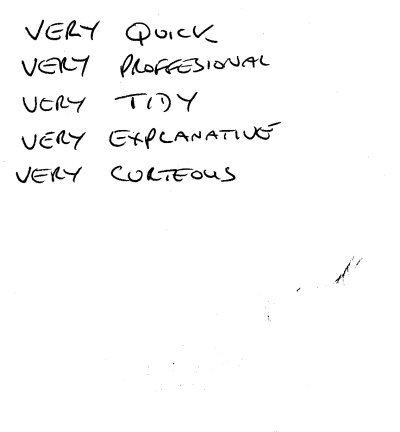 VERY QUICK
VERY PROFFESIONAL
VERY TIDY
VERY EXPLANATIVE
VERY CURTEOUS